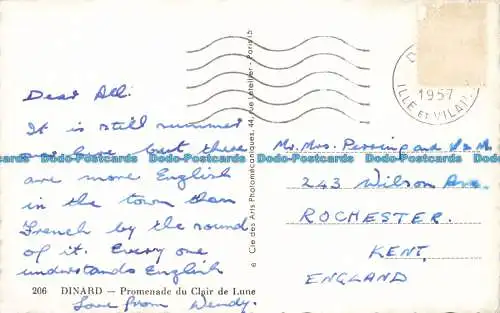 Dear All.
It is still summer
over here but there
are more English
in the town than
French by the sound
of it. Every one
understands English
Love from Wendy.
206 DINARD — Promenade du Clair de Lune
6 Cie des Arts Photomécaniques, 44, rue Letellier - Paris 15
1957
ILLE ET VILAINE
Mr. Mrs. Perring and
243 Wilson Ave.
ROCHESTER.
KENT.
ENGLAND
Dodo-Postcards Dodo-Postcards Dodo-Postcards Dodo-Postcards